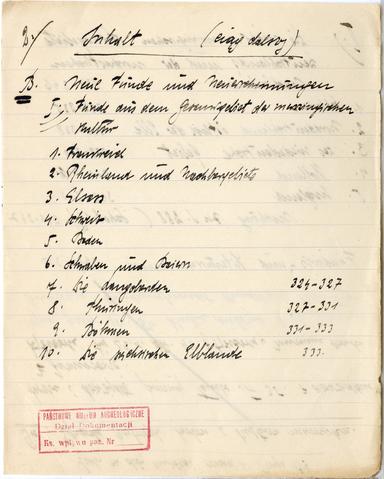 2./ Inhalt (ciąg dalszy)
B. Neue Funde und
I. Funde aus dem Gesamtgebiet der merowingischen
Kultur
1. Frankreich
2. Rheinland und Nachbargebiete
3. Elsass
4. Schweiz
5. Baden
6. Schwaben und Baiern
7. Die Langobarden 324-327
8. Thüringen 327-331
9. Böhmen 331-333
10. Die sächsischen Elblande 333.
PAŃSTWOWE MUZEUM ARCHEOLOGICZNE
Dział Dokumentacji
Ks. wpływu poz. Nr